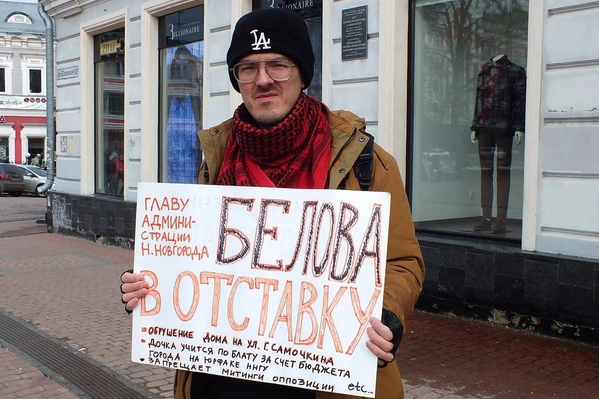 BILLIONAIRE
BILLIONAIRE
LA
ГЛАВУ
АДМИНИ-
СТРАЦИИ
Н.НОВГОРОДА
БЕЛОВА
В ОТСТАВКУ
• ОБРУШЕНИЕ ДОМА НА УЛ. Г.САМОЧКИНА
• ДОЧКА УЧИТСЯ ПО БЛАТУ ЗА СЧЕТ БЮДЖЕТА
ГОРОДА НА ЮРФАКЕ ННГУ
• ЗАПРЕЩАЕТ МИТИНГИ ОППОЗИЦИИ etc...